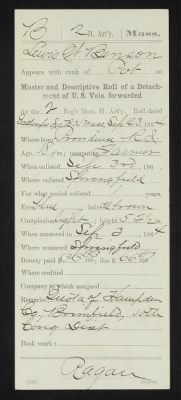 B 2 H. Art'y. Mass.
Lewis W. Benson
Appears with rank of Pvt on
Muster and Descriptive Roll of a Detach-
ment of U. S. Vols. forwarded
for the 2 Reg't Mass. H. Art'y. Roll dated
Mass Sept 23, 1864
Where born Providence R.I.
Age y'rs; occupation Farmer
When enlisted Sep. 3rd, 1864
Where enlisted Springfield
For what period enlisted years.
Eyes Blue; hair Brown
Complexion Light; height 5 ft. in.
When mustered in Sep 3, 1864
Where mustered in Springfield
Bounty paid $ 33 33/100; due $ 66 67/100
Where credited
Company to which assigned
Remarks: Quota of Hampden
Co, Brimfield, 10th
Cong Dist
Book mark:
Ragan